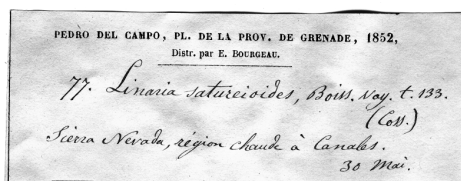 PEDRO DEL CAMPO, PL. DE LA PROV. DE GRENADE, 1852,
Distr. par E. BOURGEAU.
77. Linaria satureioides, Boiss. Voy. t. 133.
(Coss.)
Sierra Nevada, région chaude à Canales.
30 Mai.